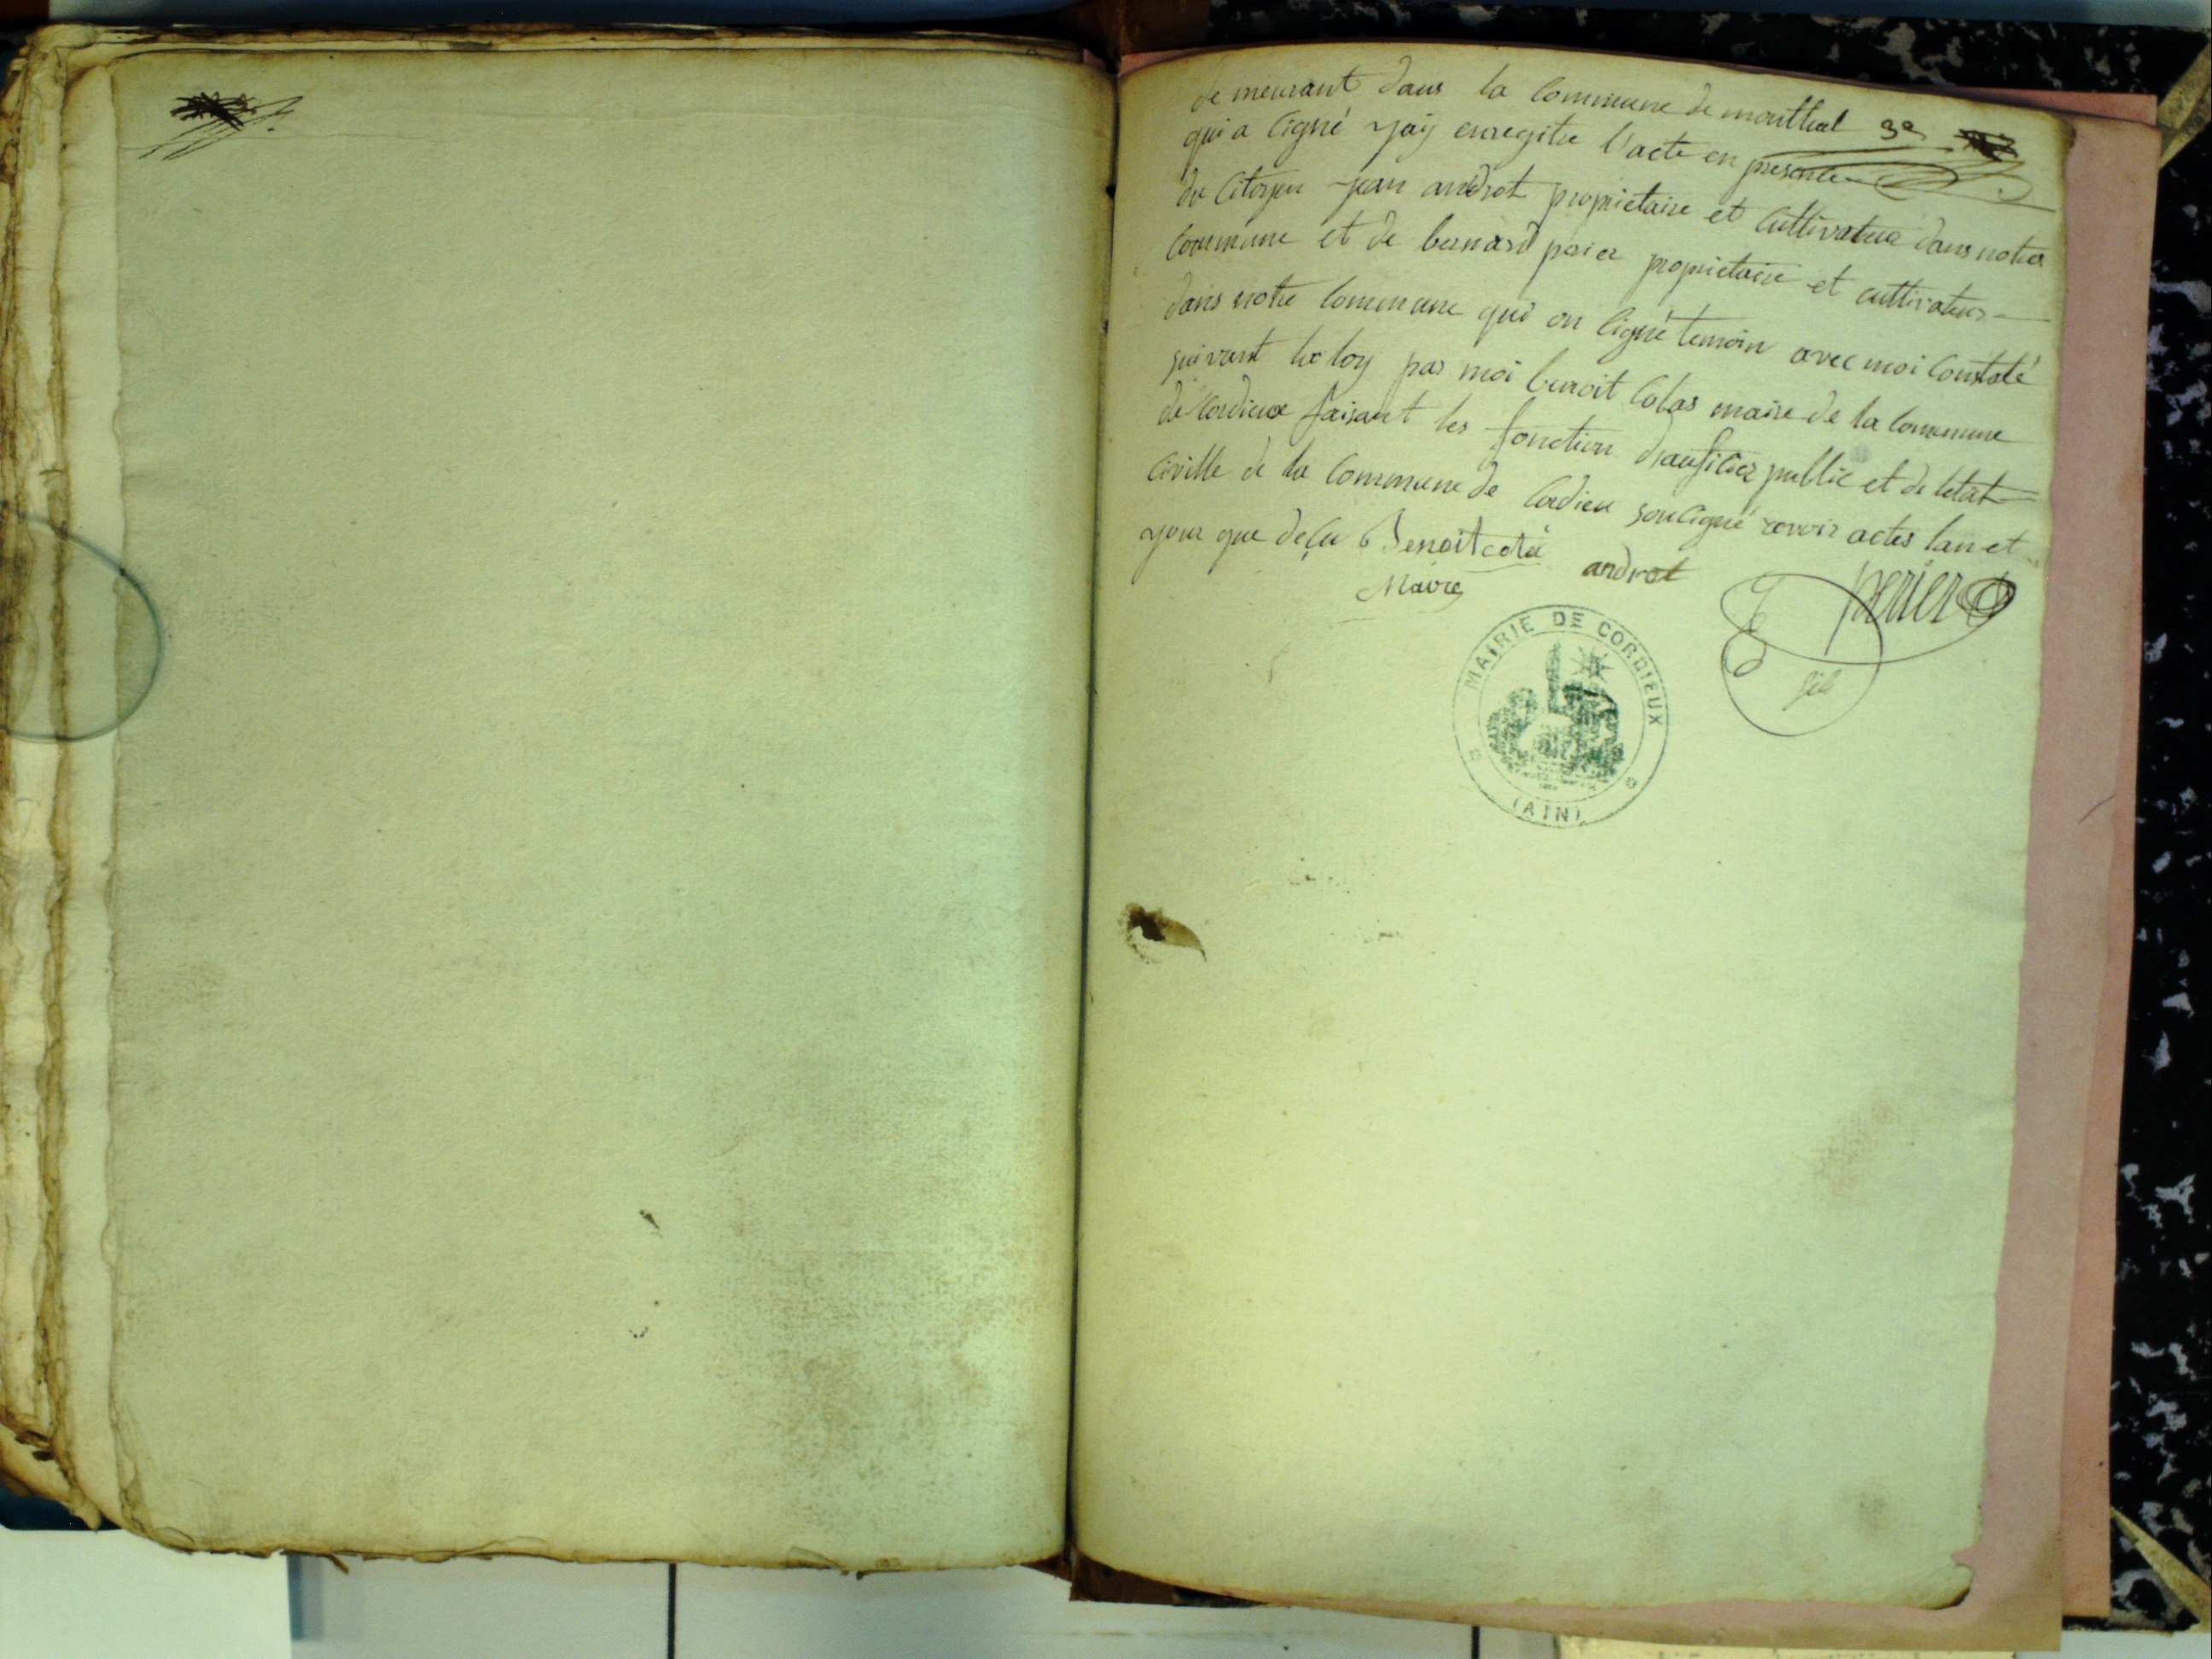 demeurant dans la Commune de monthul
qui a ligné yaÿ enregitre l'acte en presente
du Citoyen jean androt propriétaire et Cultivateur dans notre
Commune et de bernard perier propriétaire et cultivateur
dans notre Commune qui on ligné temoin avec moi Constaté
suivant la loy par moi benoit Colas maire de la Commune
de Cordieux faisant les fonction d'aufficier public et de letat
Civille de la Commune de Cordieu souligné avoir actes lan et
jour que deçu Benoit cola androt perier
Maire fils
MAIRIE DE CORDIEUX
(AIN)